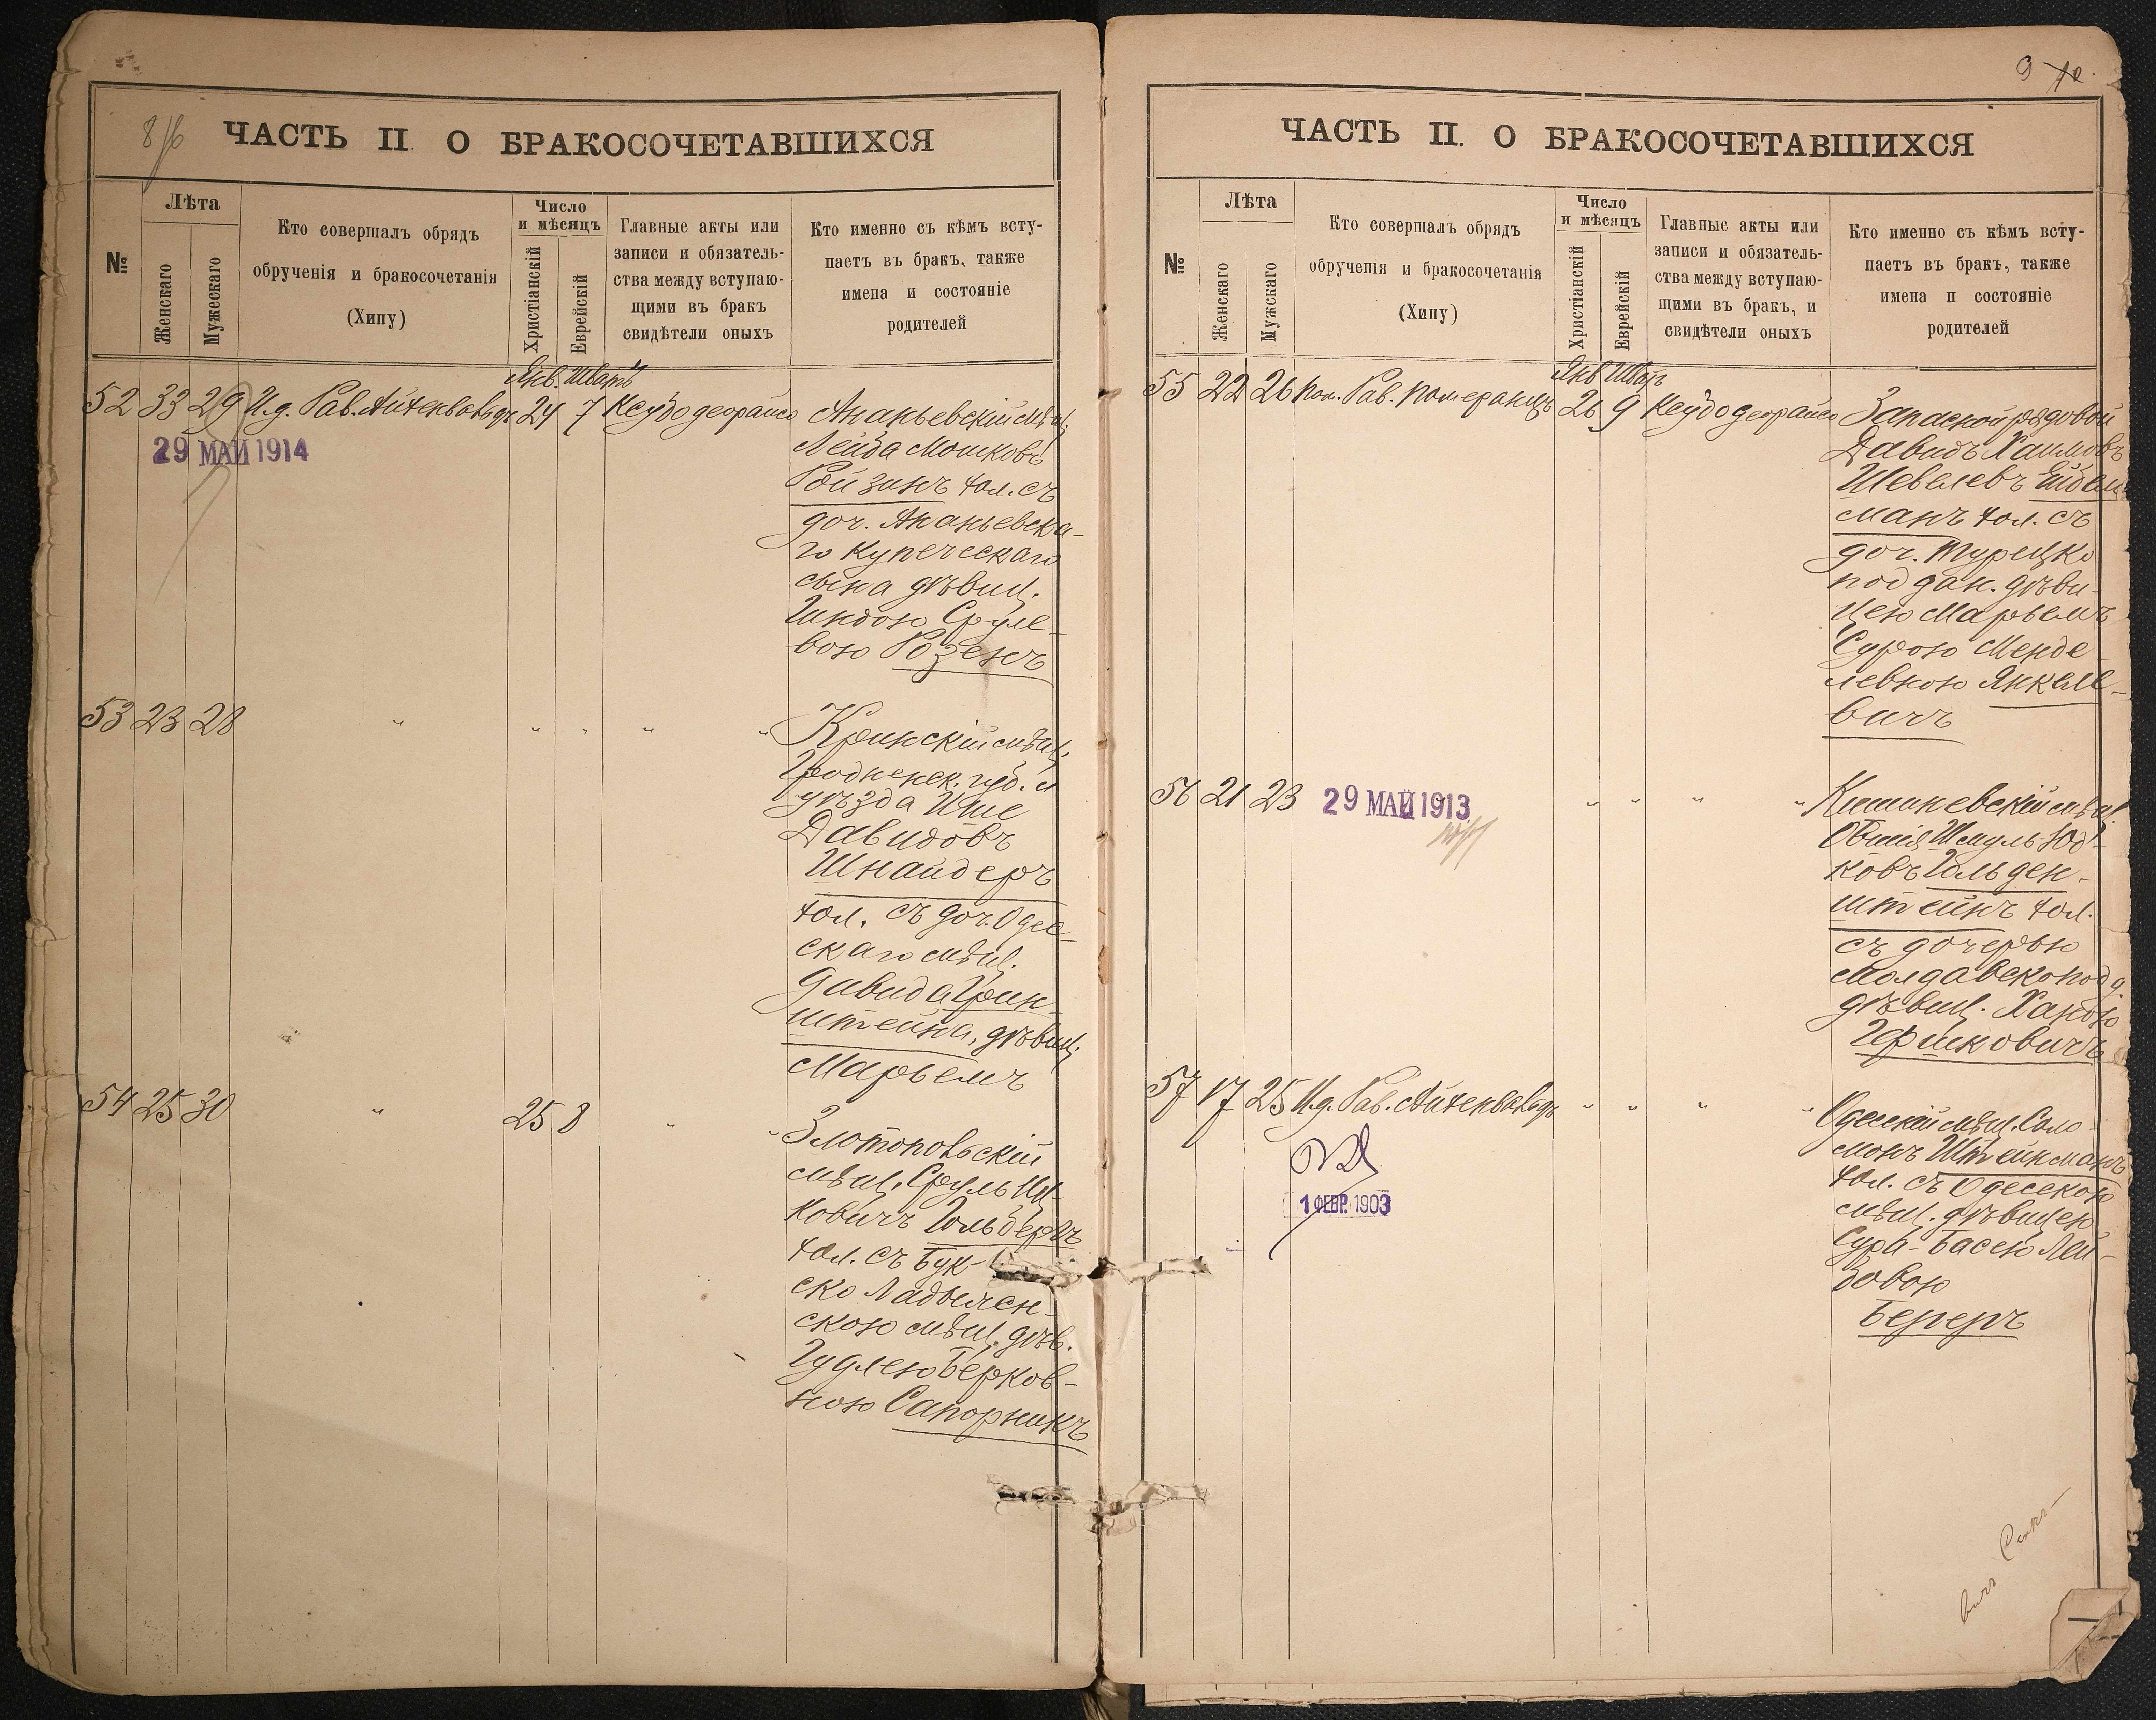 8
ЧАСТЬ II. О БРАКОСОЧЕТАВШИХСЯ
№
Лѣта
Женскаго
Мужескаго
Кто совершалъ обрядъ
обрученія и бракосочетанія
(Хипу)
Число
и мѣсяцъ
Христіанскій
Еврейскій
Главные акты или
записи и обязатель-
ства между вступаю-
щими въ бракъ
свидѣтели оныхъ
Кто именно съ кѣмъ всту-
паетъ въ бракъ, также
имена и состояніе
родителей
Янв. Шватъ
52 33 29 И.д. Рав. Айхенвальдъ 24 7 Кеўбо деорайсо
29 МАЙ 1914
Ананьевскій мѣщ.
Лейба Мошковъ
Ройзинъ хол. съ
доч. Ананьевска-
го купеческаго
сына дѣвиц.
Сруле-
вою Розенъ
53 23 28 " " " "
Кринскій мѣщ.
Гродненск. губ. и
уѣзда
Давидовъ
Шнайдеръ
хол. съ доч. Одес-
скаго мѣщ.
Давида Грин-
штейна, дѣвиц.
Марьемъ
54 25 30 " 25 8 "
Златопольскій
мѣщ. Сруль Иц-
ковичъ
хол. съ Бук-
ско Ладыжен-
скою мѣщ. дѣв.
Гудлею Берков-
ною Сапорникъ
9
ЧАСТЬ II. О БРАКОСОЧЕТАВШИХСЯ
№
Лѣта
Женскаго
Мужскаго
Кто совершалъ обрядъ
обрученія и бракосочетанія
(Хипу)
Число
и мѣсяцъ
Христіанскій
Еврейскій
Главные акты или
записи и обязатель-
ства между вступаю-
щими въ бракъ, и
свидѣтели оныхъ
Кто именно съ кѣмъ всту-
паетъ въ бракъ, также
имена и состояніе
родителей
Янв Шватъ
55 22 26 Пом. Рав. Померанцъ 26 9 Кеўбо деорайсо
Запасной рядовой
Давидъ Хаимовъ
Шевелевъ Ейдель-
манъ хол. съ
доч. Турецко
поддан. дѣви-
цею Марьемъ
Сурою Менде-
левною Янкеле-
вичъ
56 21 23 " " "
29 МАЙ 1913
Кишиневскій мѣщ.
Овшія Шмуль Юд-
ковъ Гольден-
штейнъ хол.
съ дочерью
Молдавско подд.
дѣвиц. Ханою
Гершковичъ
57 17 25 И.д. Рав. Айхенвальдъ " " "
1 ФЕВР. 1903
Одесскій мѣщ. Соло-
монъ Штейнманъ
хол. съ Одесскою
мѣщ. дѣвицею
Сура-Басею Лей-
бовою
Бегеръ